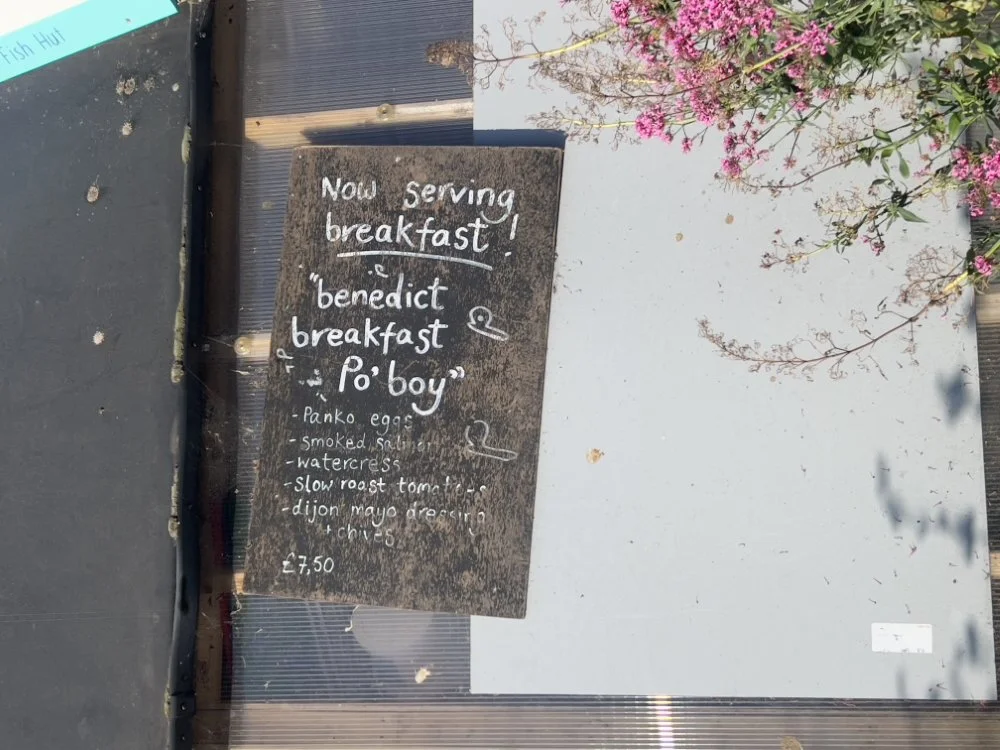 Fish Hut
Now serving
breakfast !
"benedict
breakfast
Po' boy"
- Panko eggs
- smoked salmon
- watercress
- slow roast tomatoes
- dijon mayo dressing
+ chives
£7,50